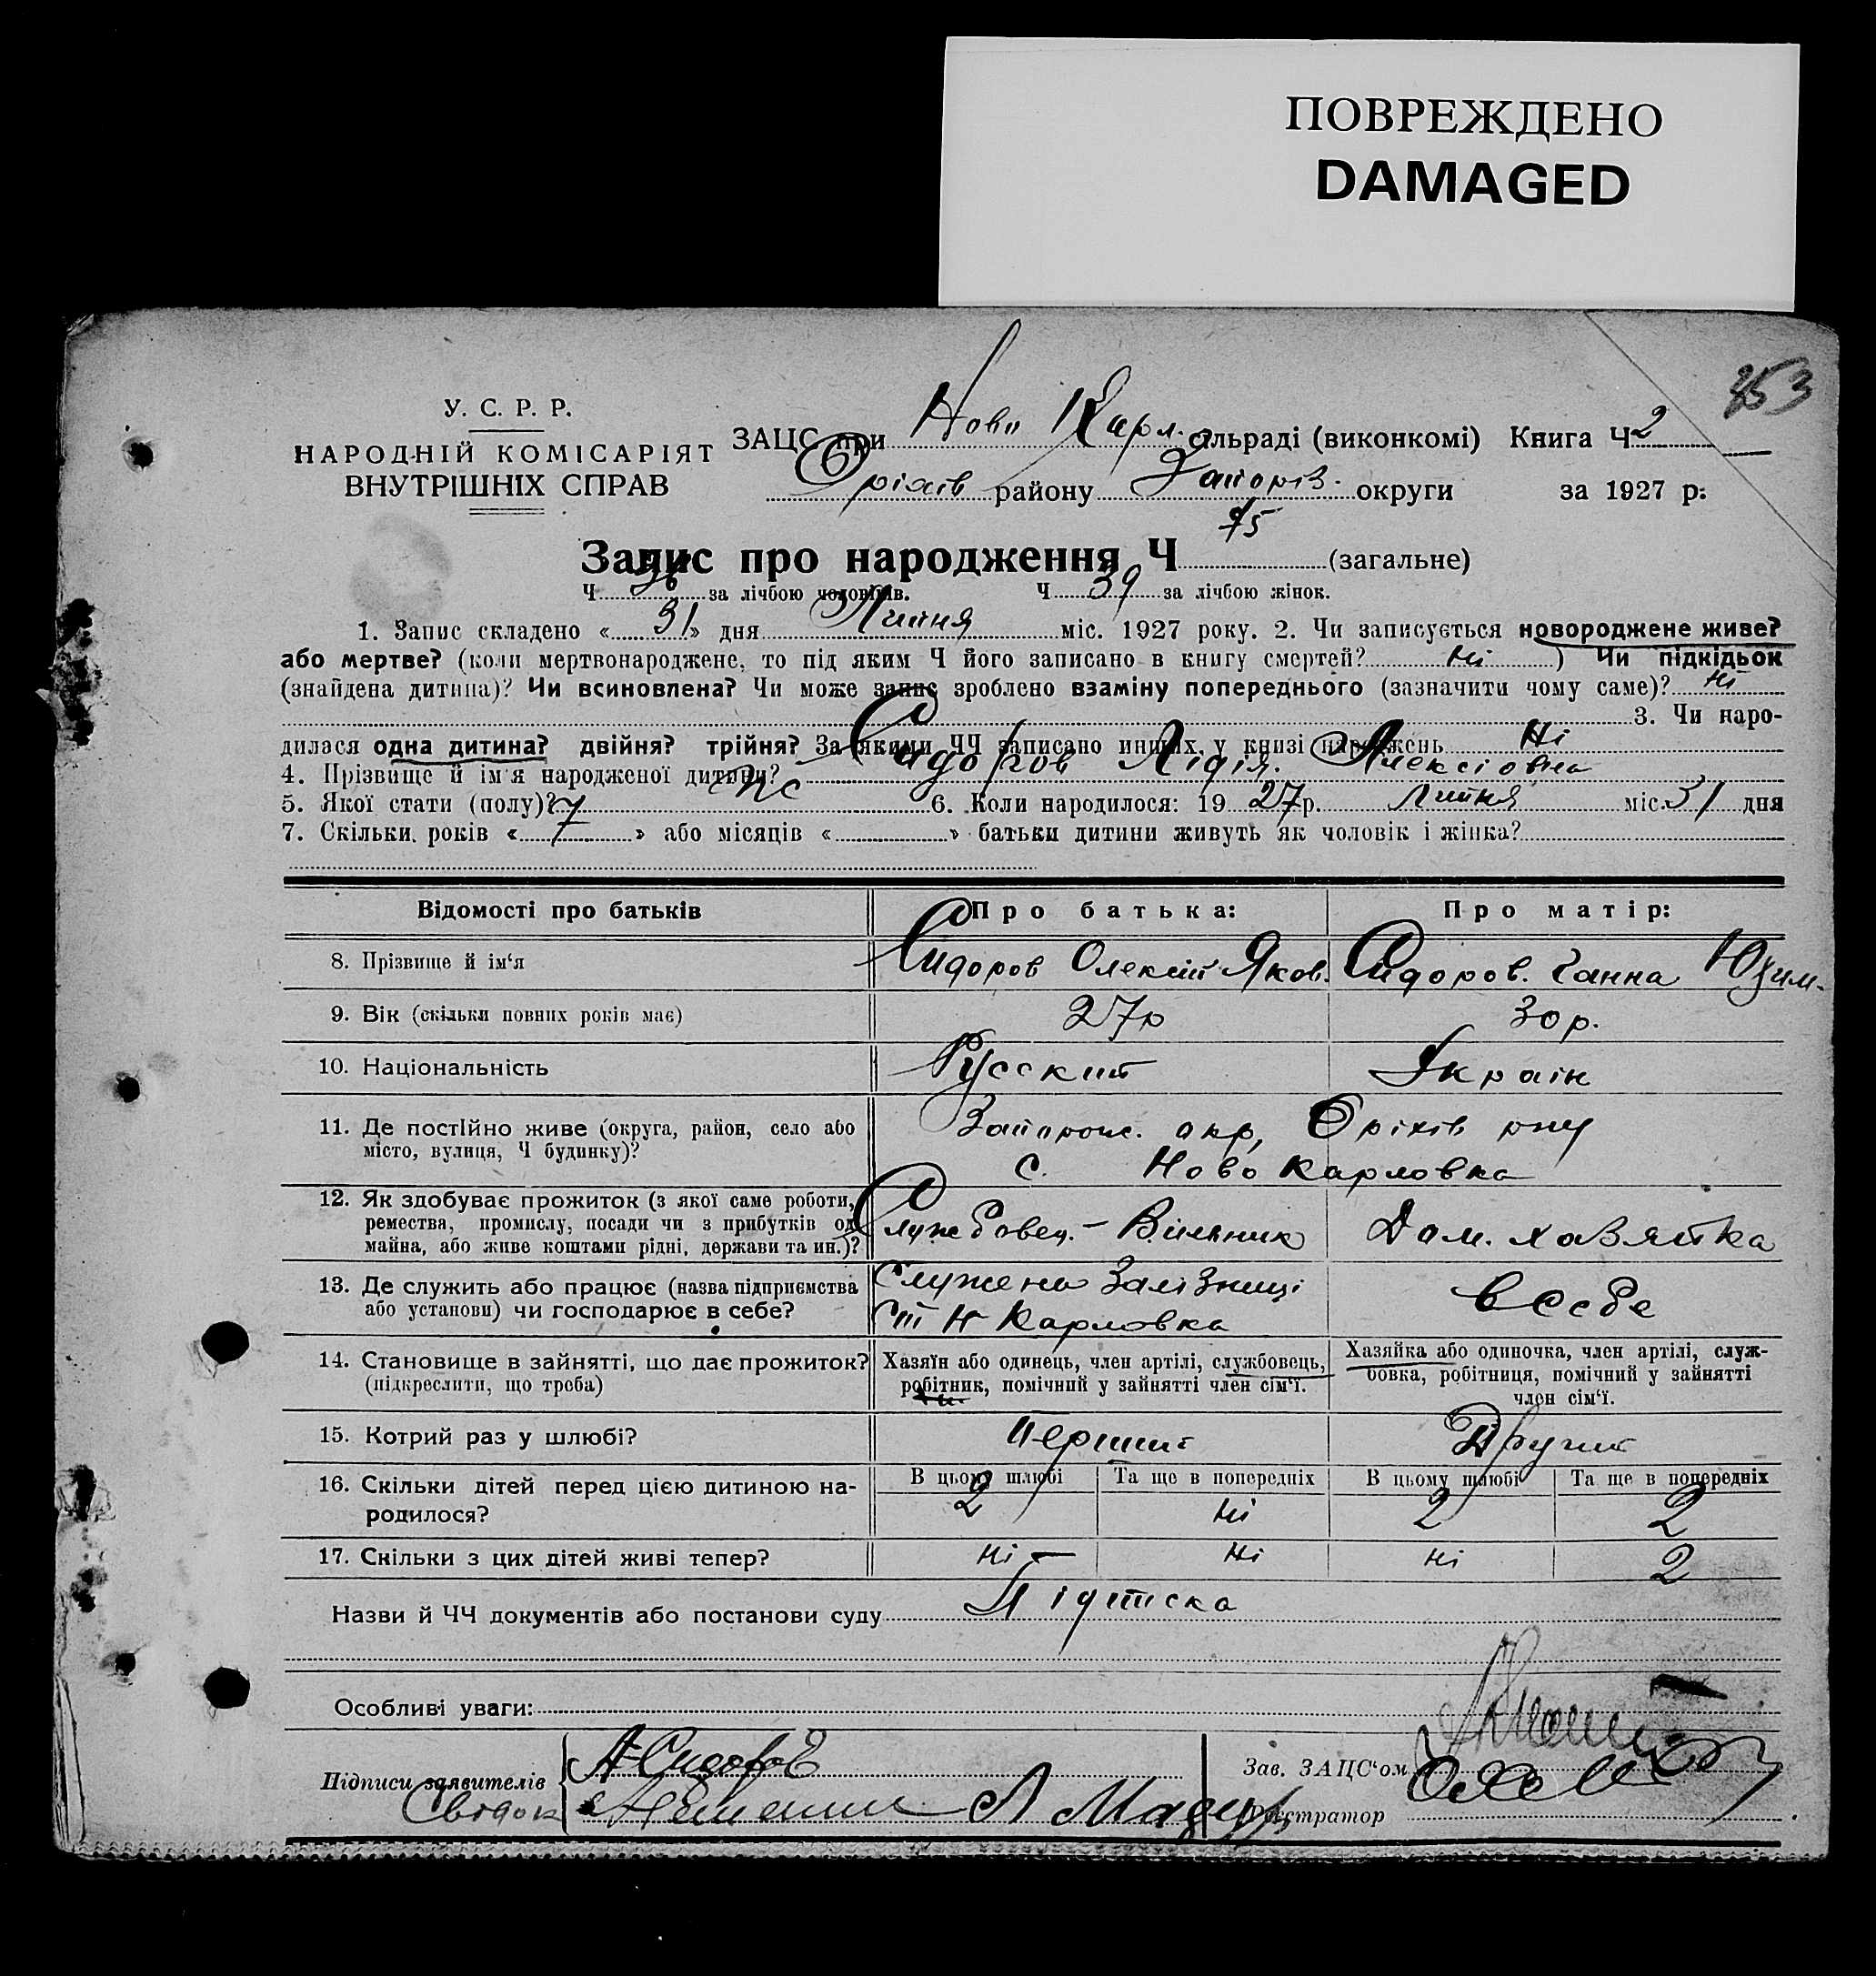 ПОВРЕЖДЕНО
DAMAGED
У. С. Р. Р.
НАРОДНІЙ КОМІСАРІЯТ
ВНУТРІШНІХ СПРАВ
353
ЗАЦС при Ново Карл. сільраді (виконкомі) Книга Ч 2
Оріхів району Запоріз. округи за 1927 р.
Запис про народження Ч 75 (загальне)
Ч 36 за лічбою чоловіків. Ч 39 за лічбою жінок.
1. Запис складено « 31 » дня Липня міс. 1927 року. 2. Чи записується новороджене живе?
або мертве? (коли мертвонароджене, то під яким Ч його записано в книгу смертей? Ні ) Чи підкідьок
(знайдена дитина)? Чи всиновлена? Чи може запис зроблено взаміну попереднього (зазначити чому саме)? Ні
3. Чи наро-
дилася одна дитина? двійня? трійня? За якими ЧЧ записано инших у книзі народжень Ні
4. Прізвище й ім'я народженої дитини? Сидоров Лідія Алексіовна
5. Якої стати (полу)? 6. Коли народилося: 19 27 р. Липня міс. 31 дня
7. Скільки років « 7 » або місяців « » батьки дитини живуть як чоловік і жінка?
Відомості про батьків Про батька: Про матір:
8. Прізвище й ім'я Сидоров Олексій Яков. Сидоров. Ганна Юхим.
9. Вік (скільки повних років має) 27р 30р.
10. Національність Русский Україн
11. Де постійно живе (округа, район, село або місто, вулиця, Ч будинку)? Запорож. окр, Оріхів рну
с. Ново Карловка
12. Як здобуває прожиток (з якої саме роботи, ремества, промислу, посади чи з прибутків од майна, або живе коштами рідні, держави та ин.)? Службовец. - Дом. хозяйка
13. Де служить або працює (назва підприємства або установи) чи господарює в себе? Служе на Залізниці
ст Н Карловка
в себе
14. Становище в зайнятті, що дає прожиток? (підкреслити, що треба) Хазяїн або одинець, член артілі, службовець, робітник, помічний у зайнятті член сім'ї. Хазяйка або одиночка, член артілі, служ-бовка, робітниця, помічний у зайнятті член сім'ї.
15. Котрий раз у шлюбі? перший Другий
16. Скільки дітей перед цією дитиною на-родилося? В цьому шлюбі Та ще в попередніх В цьому шлюбі Та ще в попередніх
2 Ні 2 2
17. Скільки з цих дітей живі тепер? Ні – Ні Ні 2
Назви й ЧЧ документів або постанови суду Підписка
Особливі уваги:
Підписи заявителів А Сидоров
Свідок
Зав. ЗАЦС'ом
Реєстратор